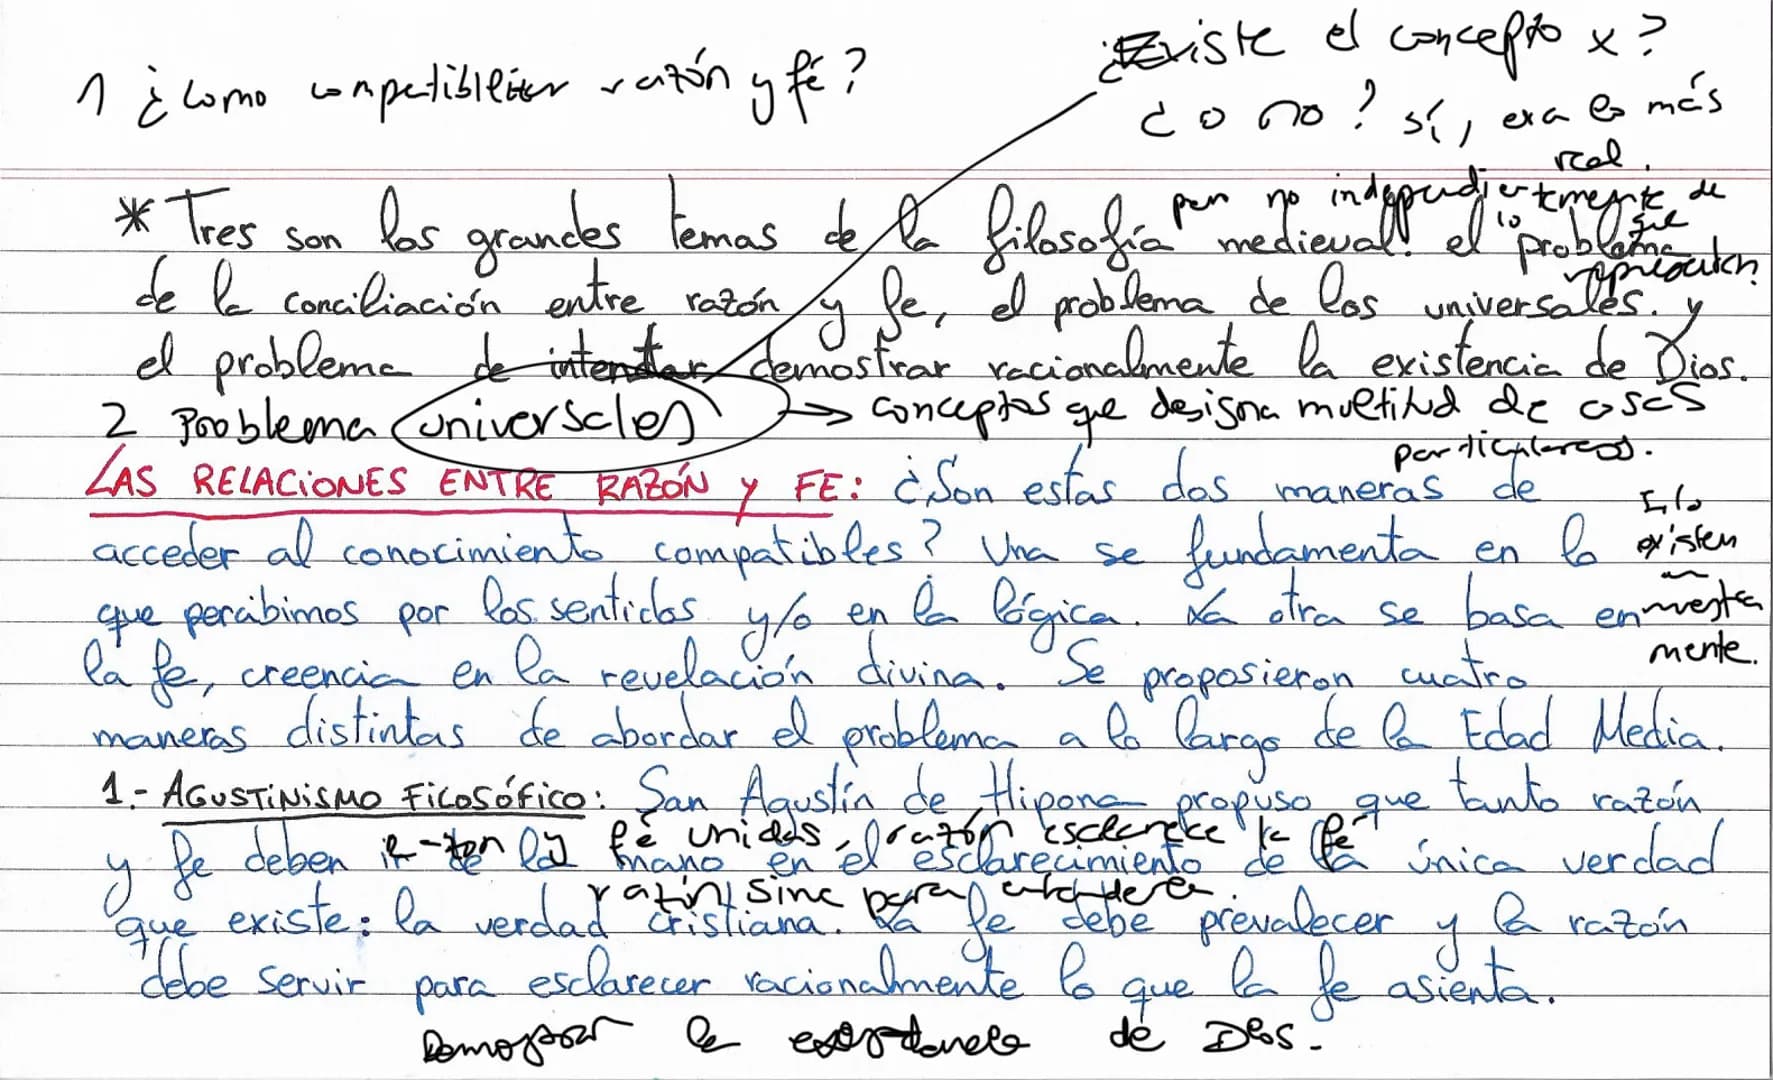 ¿Existe el concepto x?
1 ¿Como compatibilizar razón y fé?
¿o no? sí, era es más
real.
pero no independientemente de
lo que
representan
* Tres son los grandes temas de la filosofía medieval: el problema
de la conciliación entre razón y fe, el problema de los universales. y
el problema de intentar demostrar racionalmente la existencia de Dios.
2 Problema universales → conceptos que designa multitud de cosas
particulares.
LAS RELACIONES ENTRE RAZÓN Y FE: ¿Son estas dos maneras de
acceder al conocimiento compatibles? Una se fundamenta en lo
que percibimos por los sentidos y/o en la lógica. La otra se basa en
la fe, creencia en la revelación divina. Se propusieron cuatro
maneras distintas de abordar el problema a lo largo de la Edad Media.
existen
en nuestra
mente.
1.- AGUSTINISMO FILOSÓFICO: San Agustín de Hipona propuso que tanto razón
y fé unidas, razón esclarece la fé
y fe deben ir de la mano en el esclarecimiento de la única verdad
razón sirve para entender
que existe: la verdad cristiana. La fe debe prevalecer y la razón
debe servir para esclarecer racionalmente lo que la fe asienta.
Demostrar la existencia de Dios.